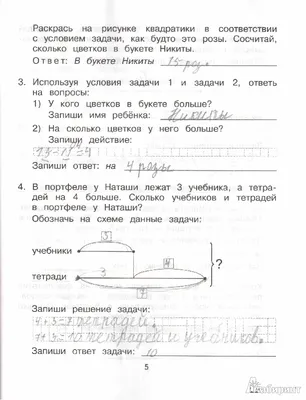 Раскрась на рисунке квадратики в соответствии
с условием задачи, как будто это розы. Сосчитай,
сколько цветков в букете Никиты.
Ответ: В букете Никиты 15 роз.
3. Используя условия задачи 1 и задачи 2, ответь
на вопросы:
1) У кого цветков в букете больше?
Запиши имя ребёнка: Никиты
2) На сколько цветков у него больше?
Запиши действие:
15-11=4
Запиши ответ: на 4 розы
4. В портфеле у Наташи лежат 3 учебника, а тетра-
дей на 4 больше. Сколько учебников и тетрадей
в портфеле у Наташи?
Обозначь на схеме данные задачи:
3
учебники
4
тетради 3
7
Запиши решение задачи:
4+3=7 тетрадей.
7+3=10 тетрадей и учебников.
Запиши ответ задачи: 10
5